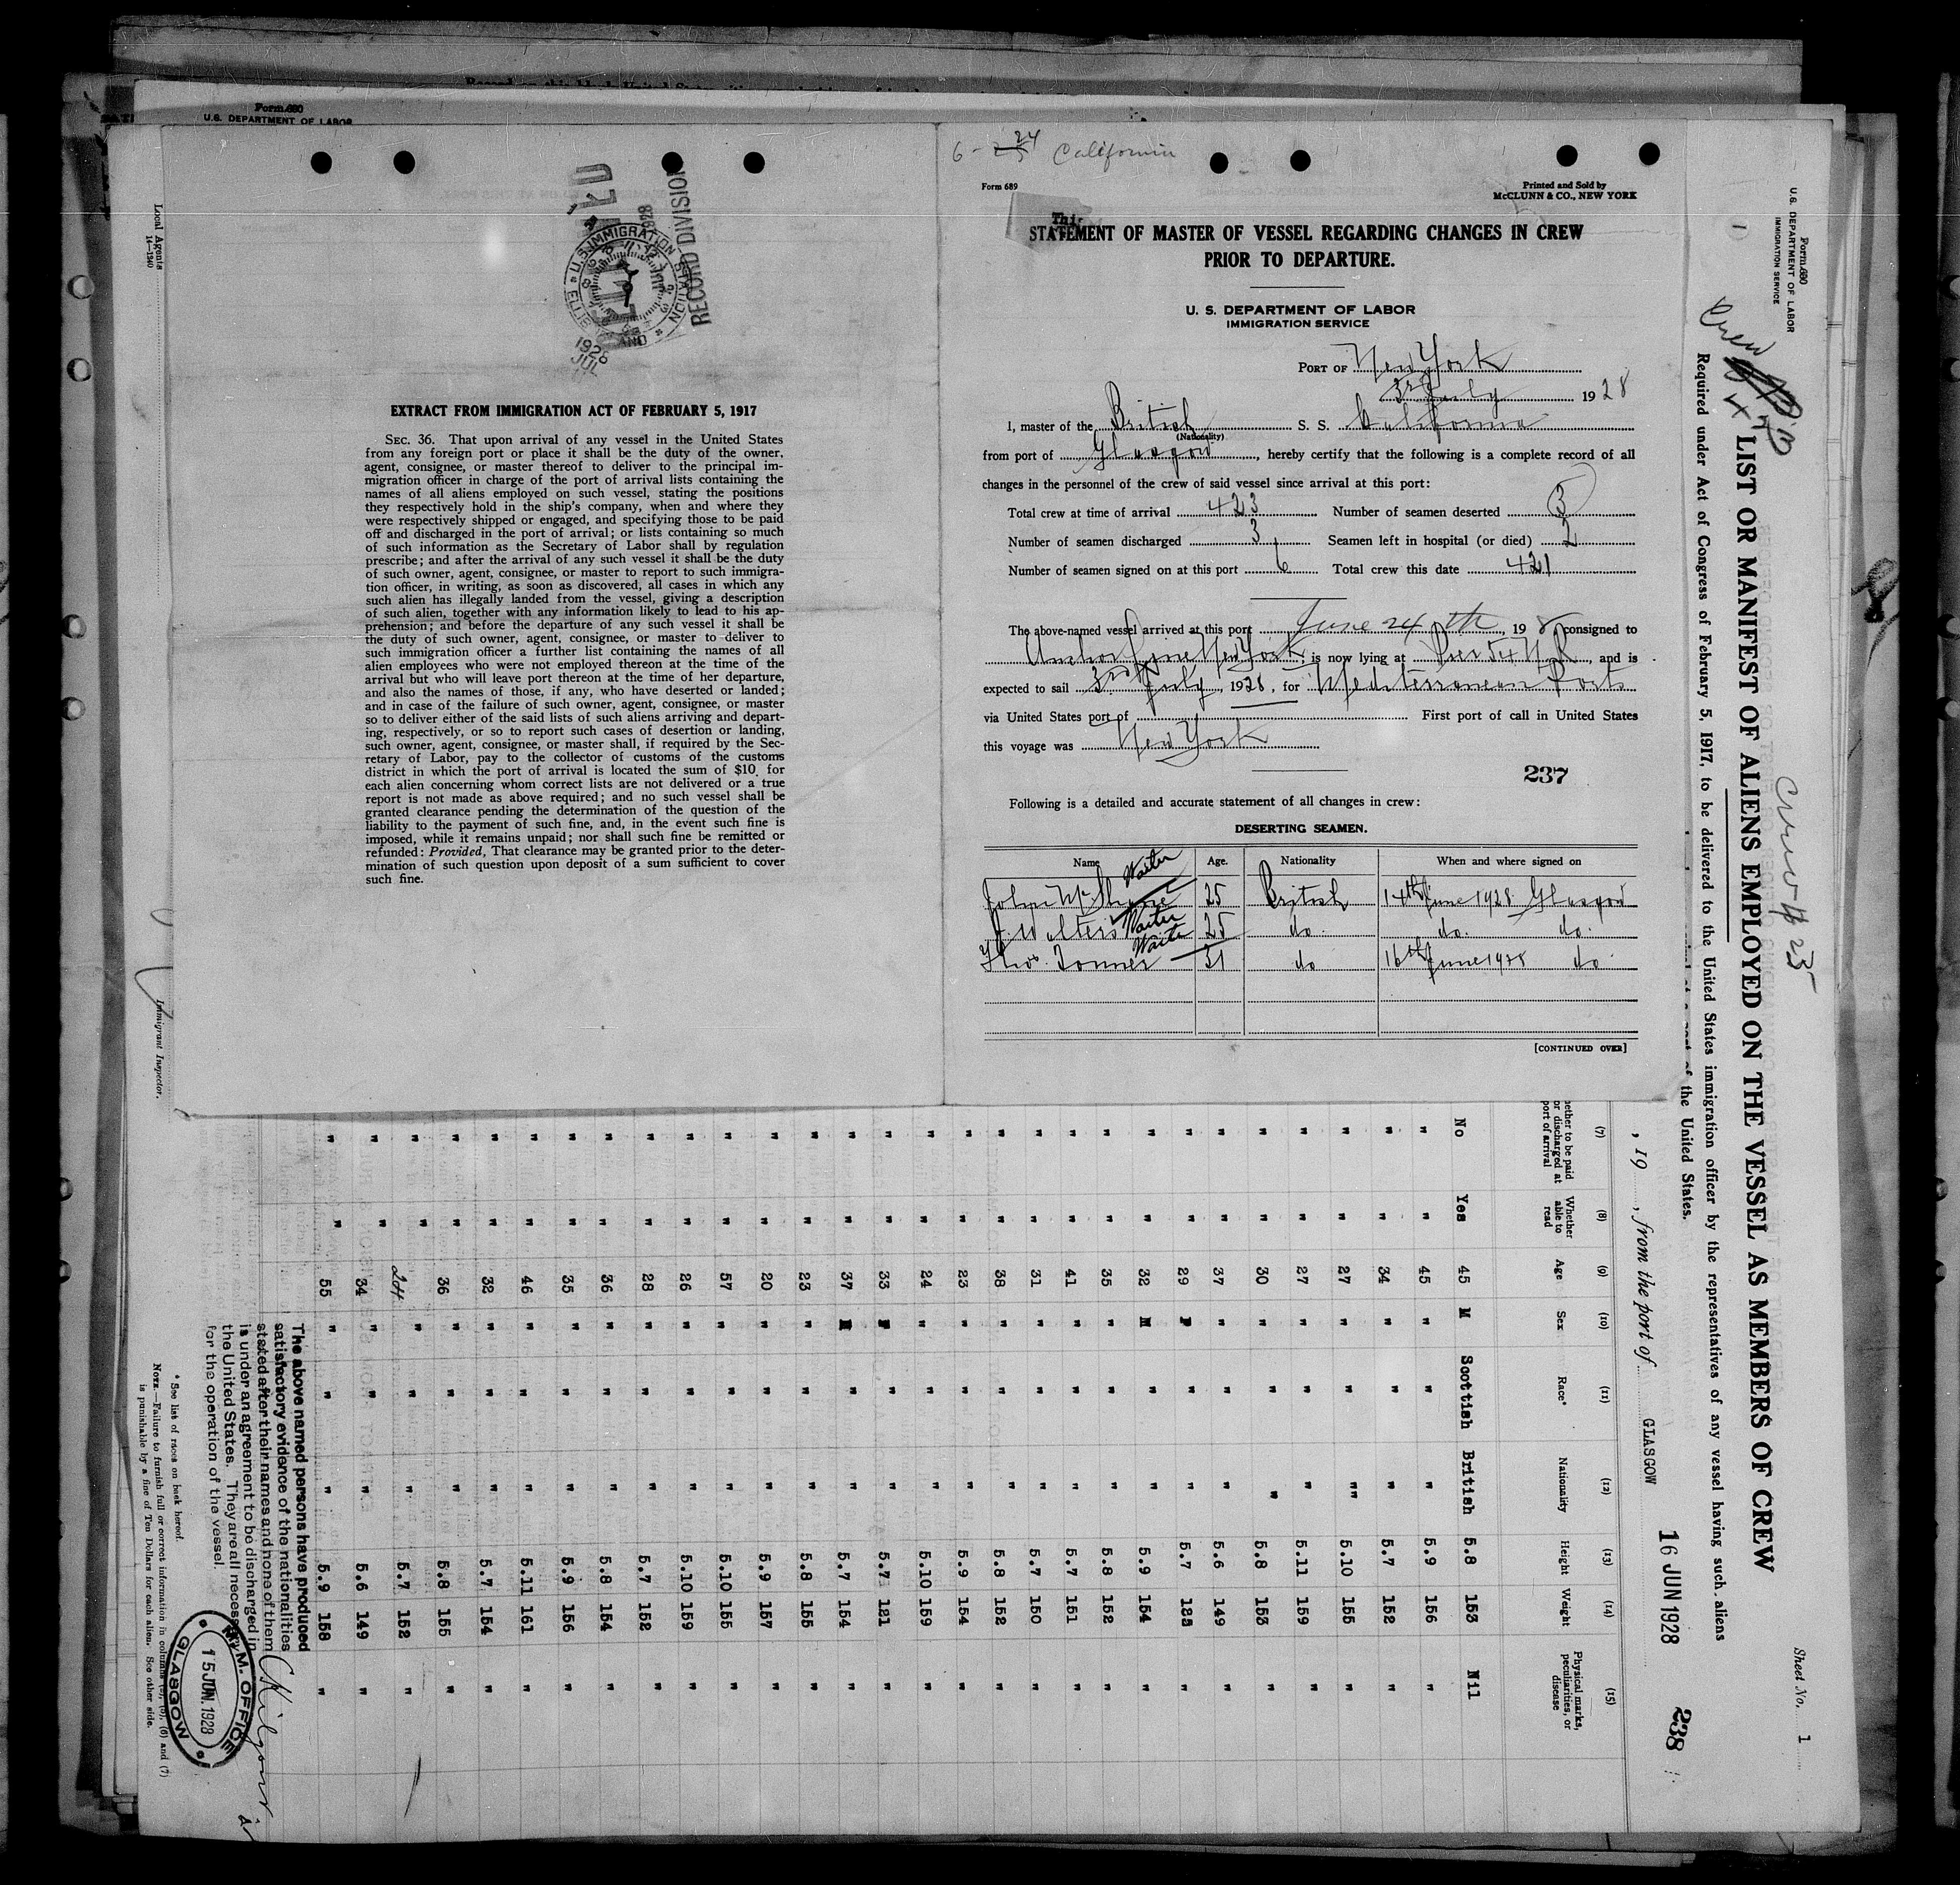 Form 680
U.S. DEPARTMENT OF LABOR
Local Agents
14—1240
Immigrant Inspector.
RECORD DIVISION
1928
U.S. IMMIGRATION STATION
ELLIS ISLAND
1928
JUL
EXTRACT FROM IMMIGRATION ACT OF FEBRUARY 5, 1917
SEC. 36. That upon arrival of any vessel in the United States
from any foreign port or place it shall be the duty of the owner,
agent, consignee, or master thereof to deliver to the principal im-
migration officer in charge of the port of arrival lists containing the
names of all aliens employed on such vessel, stating the positions
they respectively hold in the ship's company, when and where they
were respectively shipped or engaged, and specifying those to be paid
off and discharged in the port of arrival; or lists containing so much
of such information as the Secretary of Labor shall by regulation
prescribe; and after the arrival of any such vessel it shall be the duty
of such owner, agent, consignee, or master to report to such immigra-
tion officer, in writing, as soon as discovered, all cases in which any
such alien has illegally landed from the vessel, giving a description
of such alien, together with any information likely to lead to his ap-
prehension; and before the departure of any such vessel it shall be
the duty of such owner, agent, consignee, or master to deliver to
such immigration officer a further list containing the names of all
alien employees who were not employed thereon at the time of the
arrival but who will leave port thereon at the time of her departure,
and also the names of those, if any, who have deserted or landed;
and in case of the failure of such owner, agent, consignee, or master
so to deliver either of the said lists of such aliens arriving and depart-
ing, respectively, or so to report such cases of desertion or landing,
such owner, agent, consignee, or master shall, if required by the Sec-
retary of Labor, pay to the collector of customs of the customs
district in which the port of arrival is located the sum of $10 for
each alien concerning whom correct lists are not delivered or a true
report is not made as above required; and no such vessel shall be
granted clearance pending the determination of the question of the
liability to the payment of such fine, and, in the event such fine is
imposed, while it remains unpaid; nor shall such fine be remitted or
refunded: Provided, That clearance may be granted prior to the deter-
mination of such question upon deposit of a sum sufficient to cover
such fine.
6 - 24 California
Form 689
Printed and Sold by
McCLUNN & CO., NEW YORK
STATEMENT OF MASTER OF VESSEL REGARDING CHANGES IN CREW
PRIOR TO DEPARTURE.
U. S. DEPARTMENT OF LABOR
IMMIGRATION SERVICE
PORT OF New York
3rd July 1928
I, master of the British S. S. California
(Nationality)
from port of Glasgow, hereby certify that the following is a complete record of all
changes in the personnel of the crew of said vessel since arrival at this port:
Total crew at time of arrival 423 Number of seamen deserted 3
Number of seamen discharged 3 Seamen left in hospital (or died) 2
Number of seamen signed on at this port 6 Total crew this date 421
The above-named vessel arrived at this port June 24th, 198 consigned to
Anchor Line New York; is now lying at Pier 54 N R, and is
expected to sail 3rd July, 1928, for Mediterranean Ports
via United States port of First port of call in United States
this voyage was New York
237
Following is a detailed and accurate statement of all changes in crew:
DESERTING SEAMEN.
Name Age. Nationality When and where signed on
John Mc Shane Waiter 25 British 14th June 1928 Glasgow
J. Walters Waiter 25 do. do. do.
Thos. Tonner Waiter 31 do 16th June 1928 do
[CONTINUED OVER]
Form 680
U.S. DEPARTMENT OF LABOR
IMMIGRATION SERVICE
1
Crew
Crew # 25
Sheet No. 1
LIST OR MANIFEST OF ALIENS EMPLOYED ON THE VESSEL AS MEMBERS OF CREW
Required under Act of Congress of February 5, 1917, to be delivered to the United States immigration officer by the representatives of any vessel having such aliens
of the United States.
, 19 , from the port of GLASGOW 16 JUN 1928
238
(7) (8) (9) (10) (11) (12) (13) (14) (15)
Whether able to read Age Sex Race* Nationality Height Weight Physical marks, peculiarities, or disease
No Yes 45 M Scottish British 5.8 153 Nil
" " 45 " " " 5.9 156 "
" " 34 " " " 5.7 152 "
" " 27 " " "" 5.10 155 "
" " 27 " " " 5.11 159 "
" " 30 " " " 5.8 153 "
" " 37 " " " 5.6 149 "
" " 29 F " " 5.7 "
" " 32 M " " 5.9 154 "
" " 35 " " " 5.8 152 "
" " 41 " " " 5.7 151 "
" " 31 " " " 5.7 150 "
" " 38 " " " 5.8 152 "
" " 23 " " " 5.9 154 "
" " 24 " " " 5.10 159 "
" " 33 F " " 5.7 121 "
" " 37 M " " 5.7 154 "
" " 23 " " " 5.8 155 "
" " 20 " " " 5.9 157 "
" " 57 " " " 5.10 155 "
" " 26 " " " 5.10 159 "
" " 28 " " " 5.7 152 "
" " 36 " " " 5.8 154 "
" " 35 " " " 5.9 156 "
" " 46 " " " 5.11 161 "
" " 32 " " " 5.7 154 "
" " 36 " " " 5.8 155 "
" " 24 " " " 5.7 152 "
" " 34 " " " 5.6 149 "
" " 55 " " " 5.9 158 "
The above named persons have produced
satisfactory evidence of the nationalities
stated after their names and none of them
is under an agreement to be discharged in
the United States. They are all necessary
for the operation of the vessel.
M.M. OFFICE
15 JUN. 1928
GLASGOW
* See list of races on back hereof.
NOTE.—Failure to furnish full or correct information in columns (6) and (7)
is punishable by a fine of Ten Dollars for each alien. See other side.